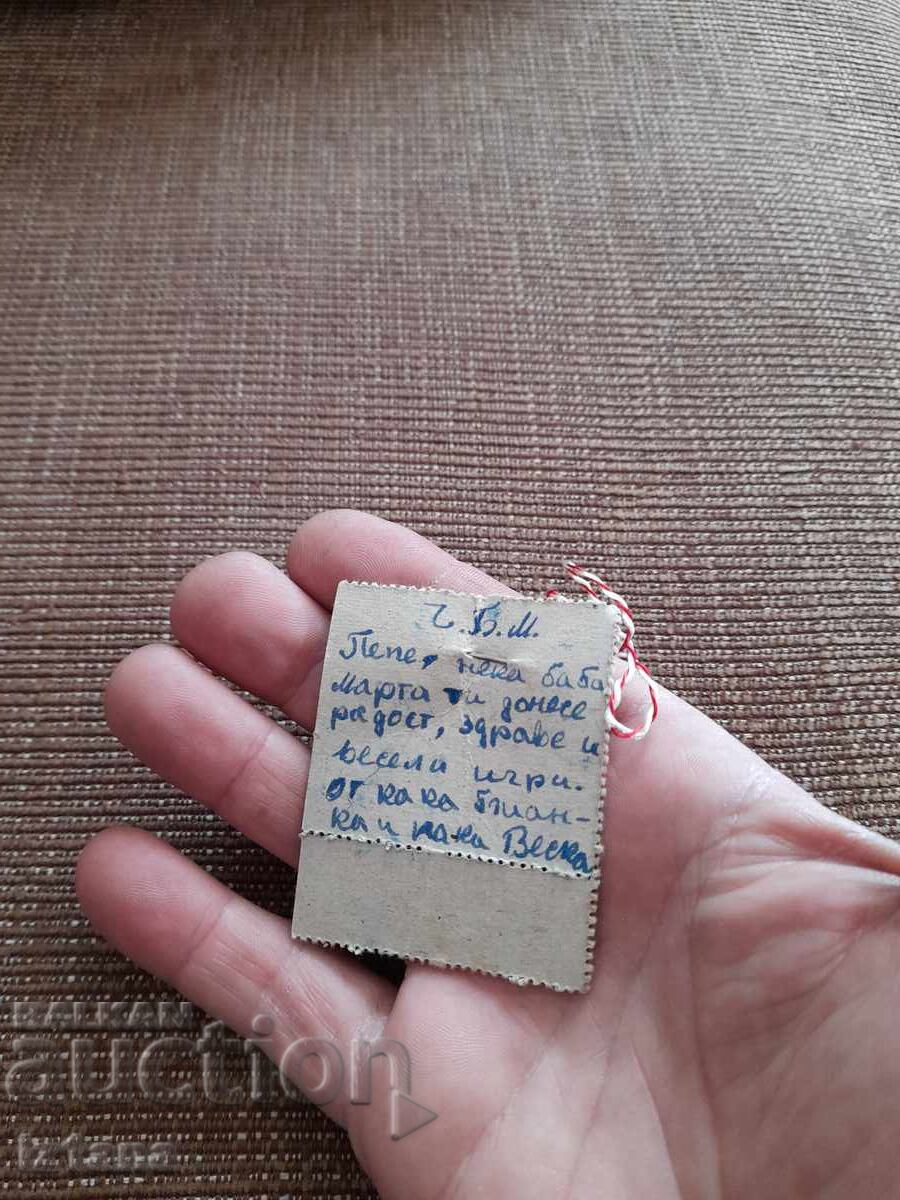 Ч.Б.М.
Пепе, нека баба
Марта ти донесе
радост, здраве и
весели игри.
от кака Биан-
ка и кака Веска
BALKAN
auction
iztana